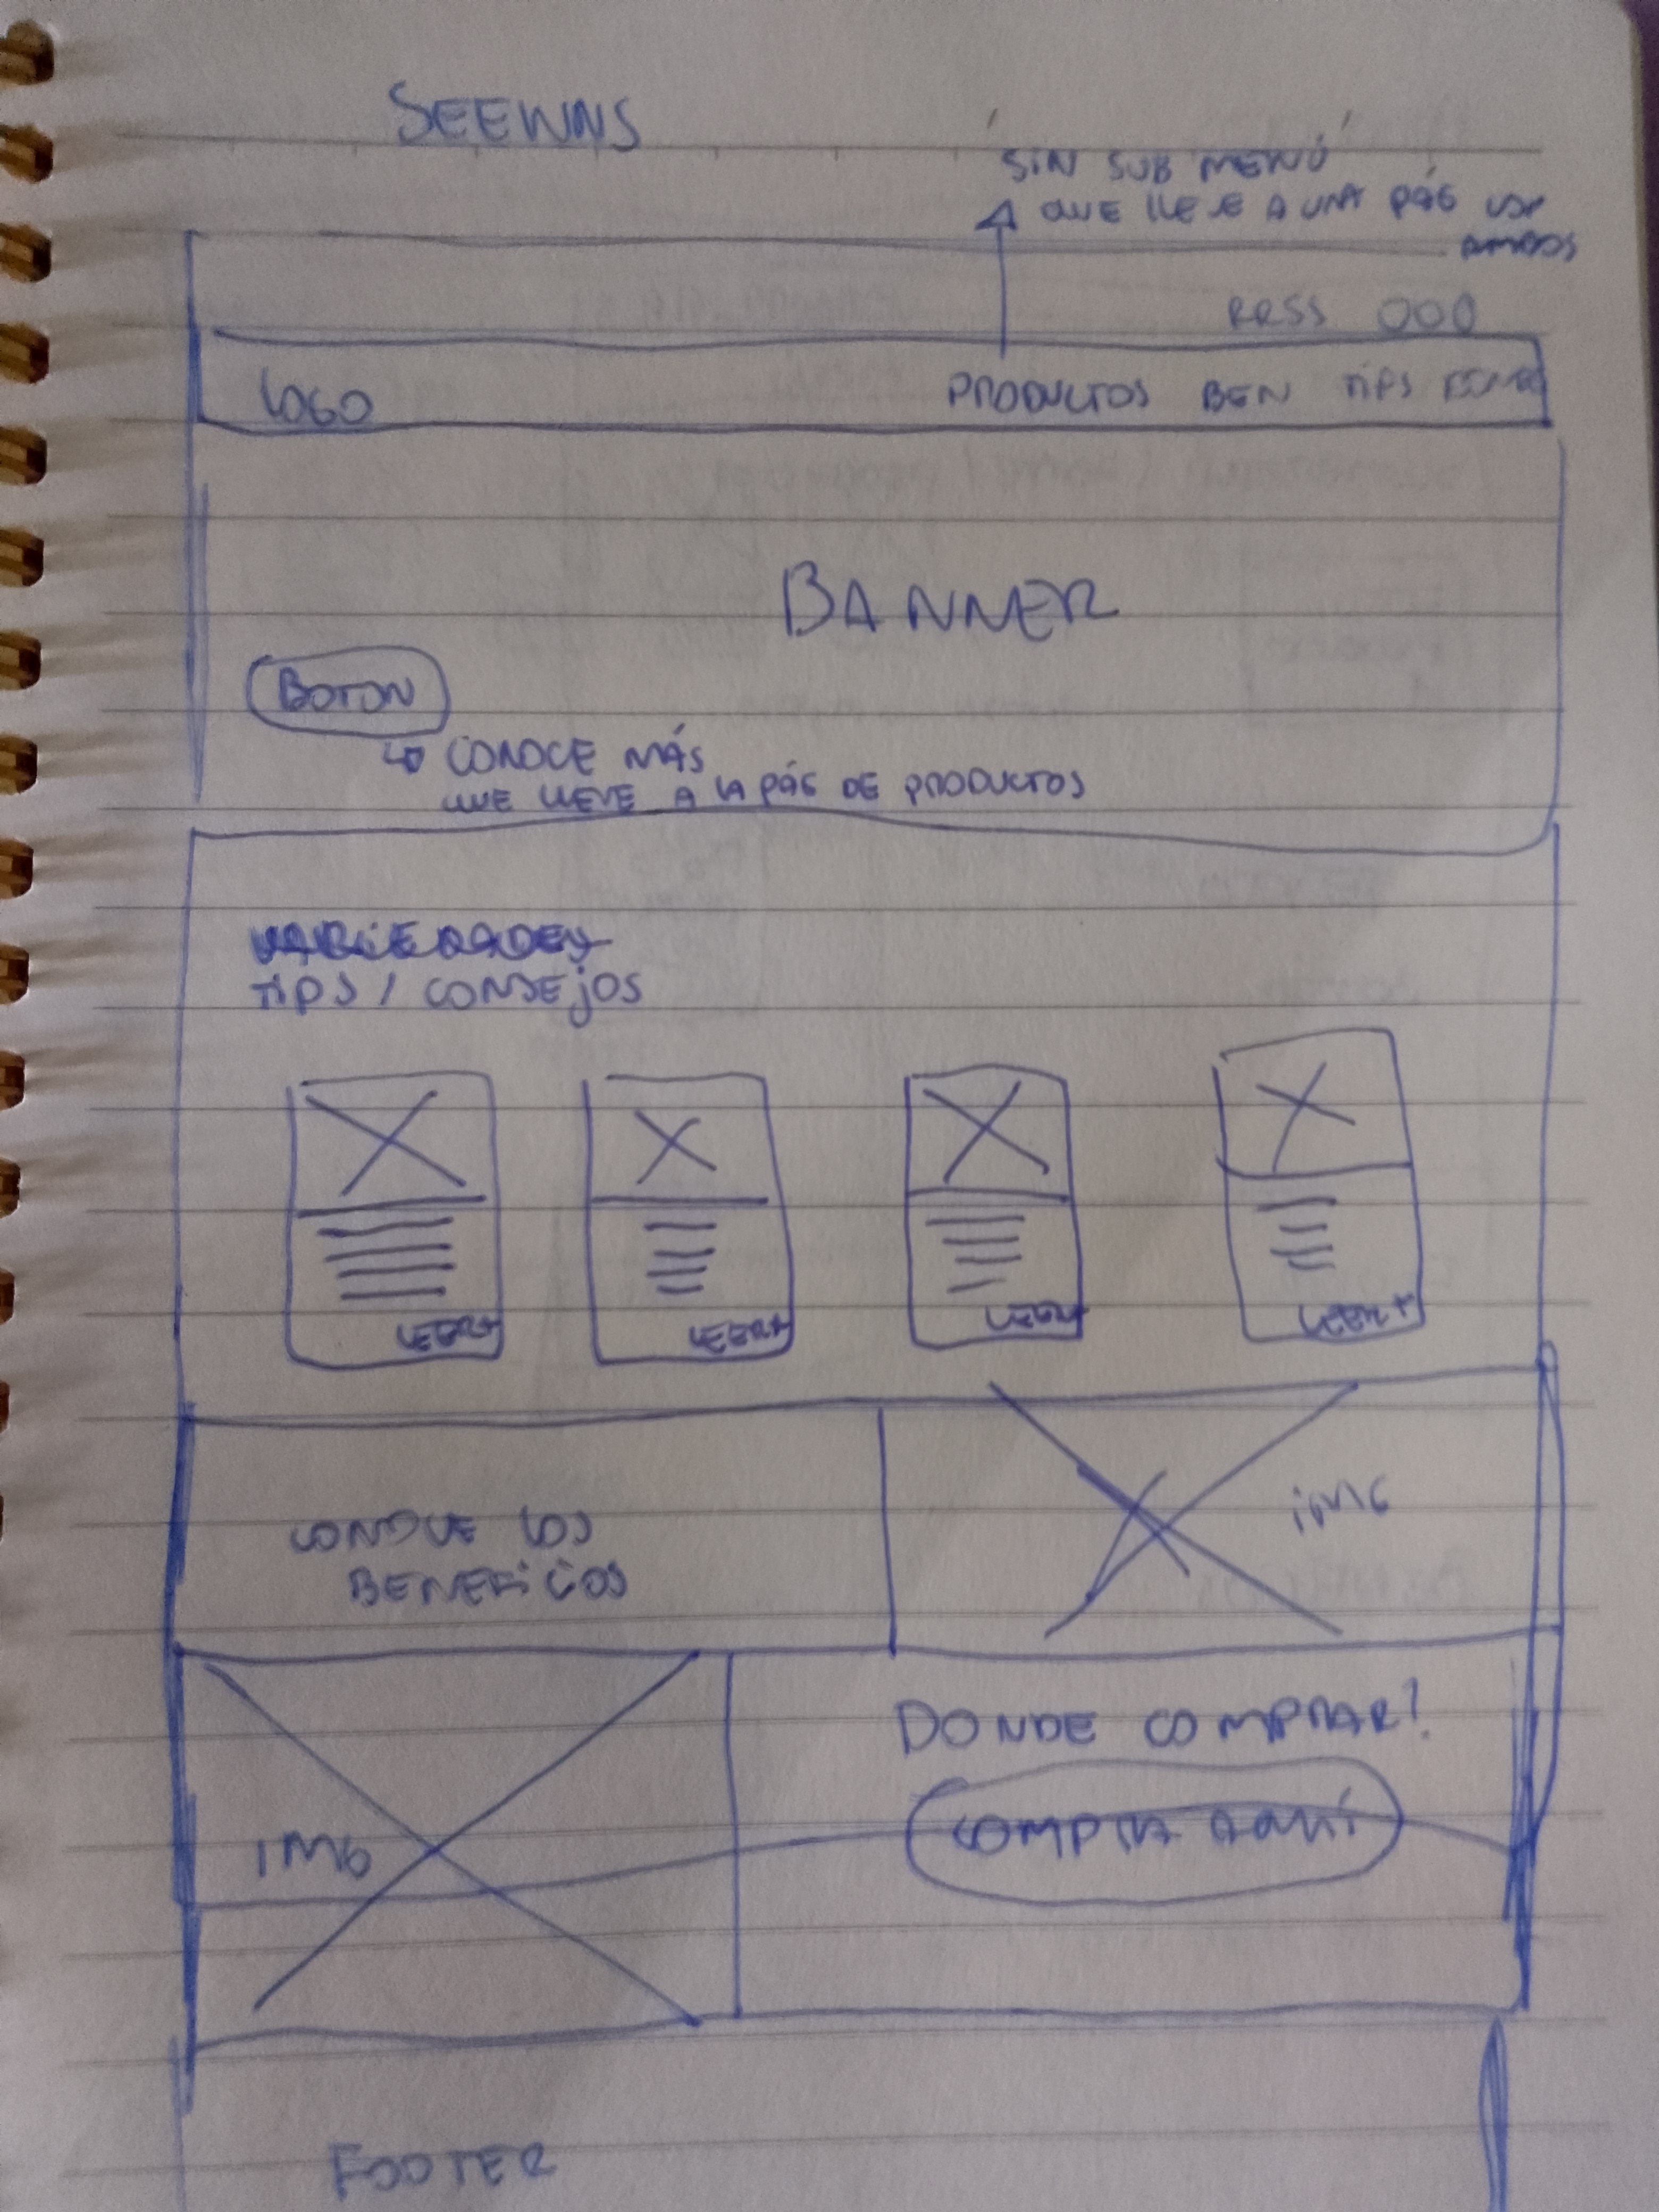 SEEWNS
SIN SUB MENÚ
QUE LLEVE A UNA PÁG
AMBOS
RRSS
LOGO
PRODUCTOS BEN TIPS
BANNER
BOTON
CONOCE MÁS
QUE LLEVE A LA PÁG DE PRODUCTOS
VARIEDADES
TIPS / CONSEJOS
LEER+ LEER+ LEER+ LEER+
CONOCE LOS
BENEFICIOS
IMG
DONDE COMPRAR?
COMPRA AQUÍ
IMG
FOOTER